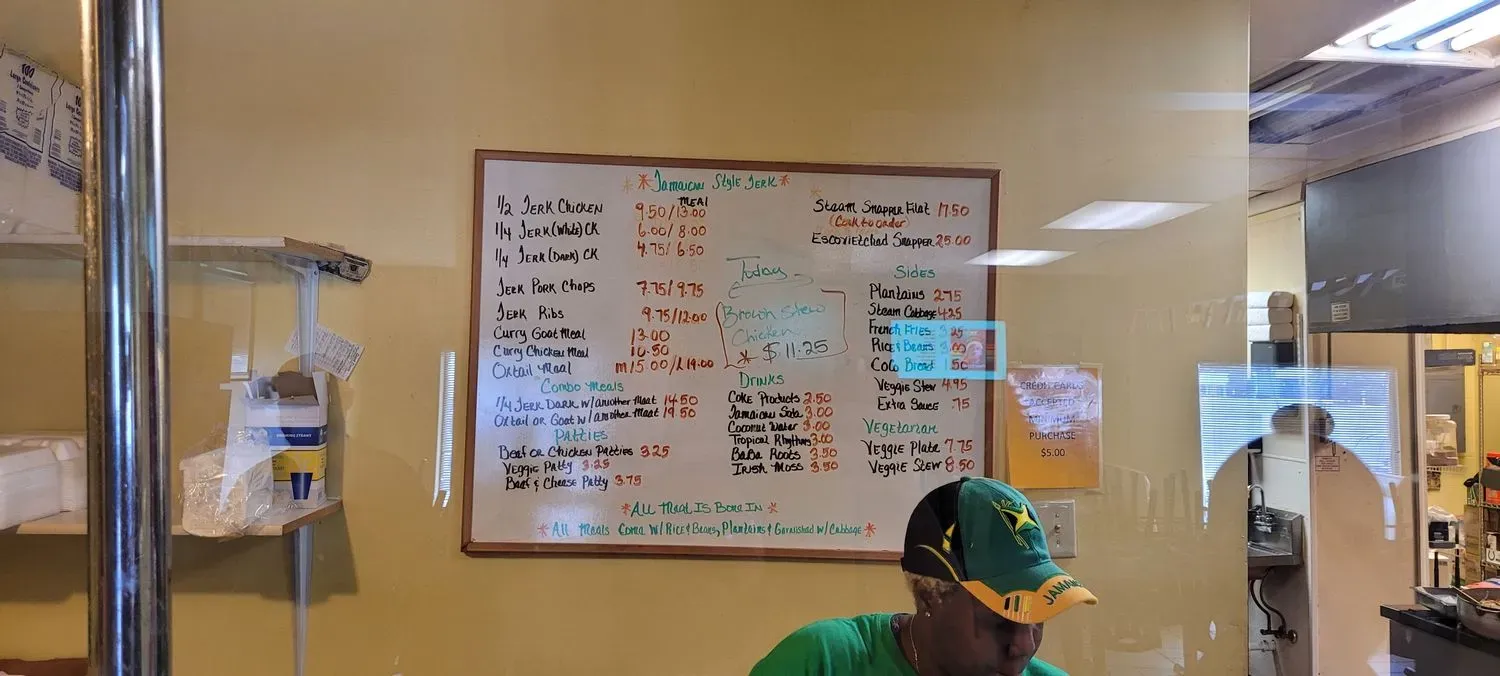 100
Large Containers
*Jamaican Style Jerk*
MEAL
1/2 JERK CHICKEN 9.50/13.00
1/4 JERK (White) CK 6.00/8.00
1/4 JERK (DARK) CK 4.75/6.50
JERK PORK CHOPS 7.75/9.75
JERK RIBS 9.75/12.00
Curry Goat Meal 13.00
Curry Chicken Meal 10.50
Oxtail Meal m/15.00/L19.00
Combo Meals
1/4 JERK DARK w/another Meat 14.50
Oxtail OR Goat w/another Meat 19.50
Patties
Beef OR Chicken Patties 3.25
Veggie Patty 3.25
Beef & Cheese Patty 3.75
Today
Brown Stew
Chicken
* $11.25
DRINKS
Coke Products 2.50
Jamaican Soda 3.00
Coconut Water 3.00
Tropical Rhythms 3.00
BaBa Roots 3.50
Irish Moss 3.50
Steam Snapper Filet 17.50
(Cook to order)
Escovietched Snapper 25.00
Sides
Plantains 2.75
Steam Cabbage 4.25
French Fries 3.25
Rice & Beans 3.00
Coco Bread .50
Veggie Stew 4.95
Extra Sauce .75
Vegetarian
Veggie Plate 7.75
Veggie Stew 8.50
*All Meal Is Bone In*
*All Meals Come w/Rice & Beans, Plantains & Garnished w/Cabbage*
CREDIT CARDS
ACCEPTED
MINIMUM
PURCHASE
$5.00